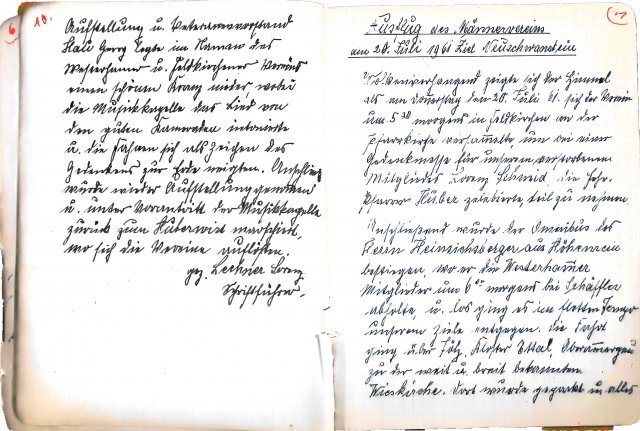 6
10.
Aufstellung u. Veteranenvorstand
Hall Georg legte im Namen des
Westerhamer u. Feldkirchener Vereins
einen schönen Kranz nieder wobei
die Musikkapelle das Lied von
den guten Kameraden intonierte
u. die Fahnen sich als Zeichen des
Gedenkens zur Erde neigten. Anschließ
wurde wieder Aufstellung genommen
u. unter Vorantritt der Musikkapelle
zurück zum Huberwirt marschiert,
wo sich die Vereine auflösten.
gez. Lechner Lorenz
Schriftführer.
Ausflug des Männervereins
am 20. Juli 1961 Ziel Neuschwanstein
Wolkenverhangend zeigte sich der Himmel
als am Donnerstag den 20. Juli 61. sich der Verein
um 5 30 morgens in Feldkirchen an der
Pfarrkirche versammelte um bei einer
Gedenkmesse für unseren verstorbenen
Mitgliedes Lorenz Schmid, die Hochw.
Pfarrer Huber zelebrierte, teil zu nehmen.
Anschliessend wurde der Omnibus des
Herrn Heinrichsberger aus Höhenrain
bestiegen, wo er die Westerhamer
Mitglieder um 6 morgens bei Schäffler
abholte, u. los ging es im flotten Tempo
unserem Ziele entgegen. Die Fahrt
ging über Tölz, Kloster Ettal, Oberammergau
zu der weit u. breit bekannten
Wieskirche. Dort wurde geparkt u. alles